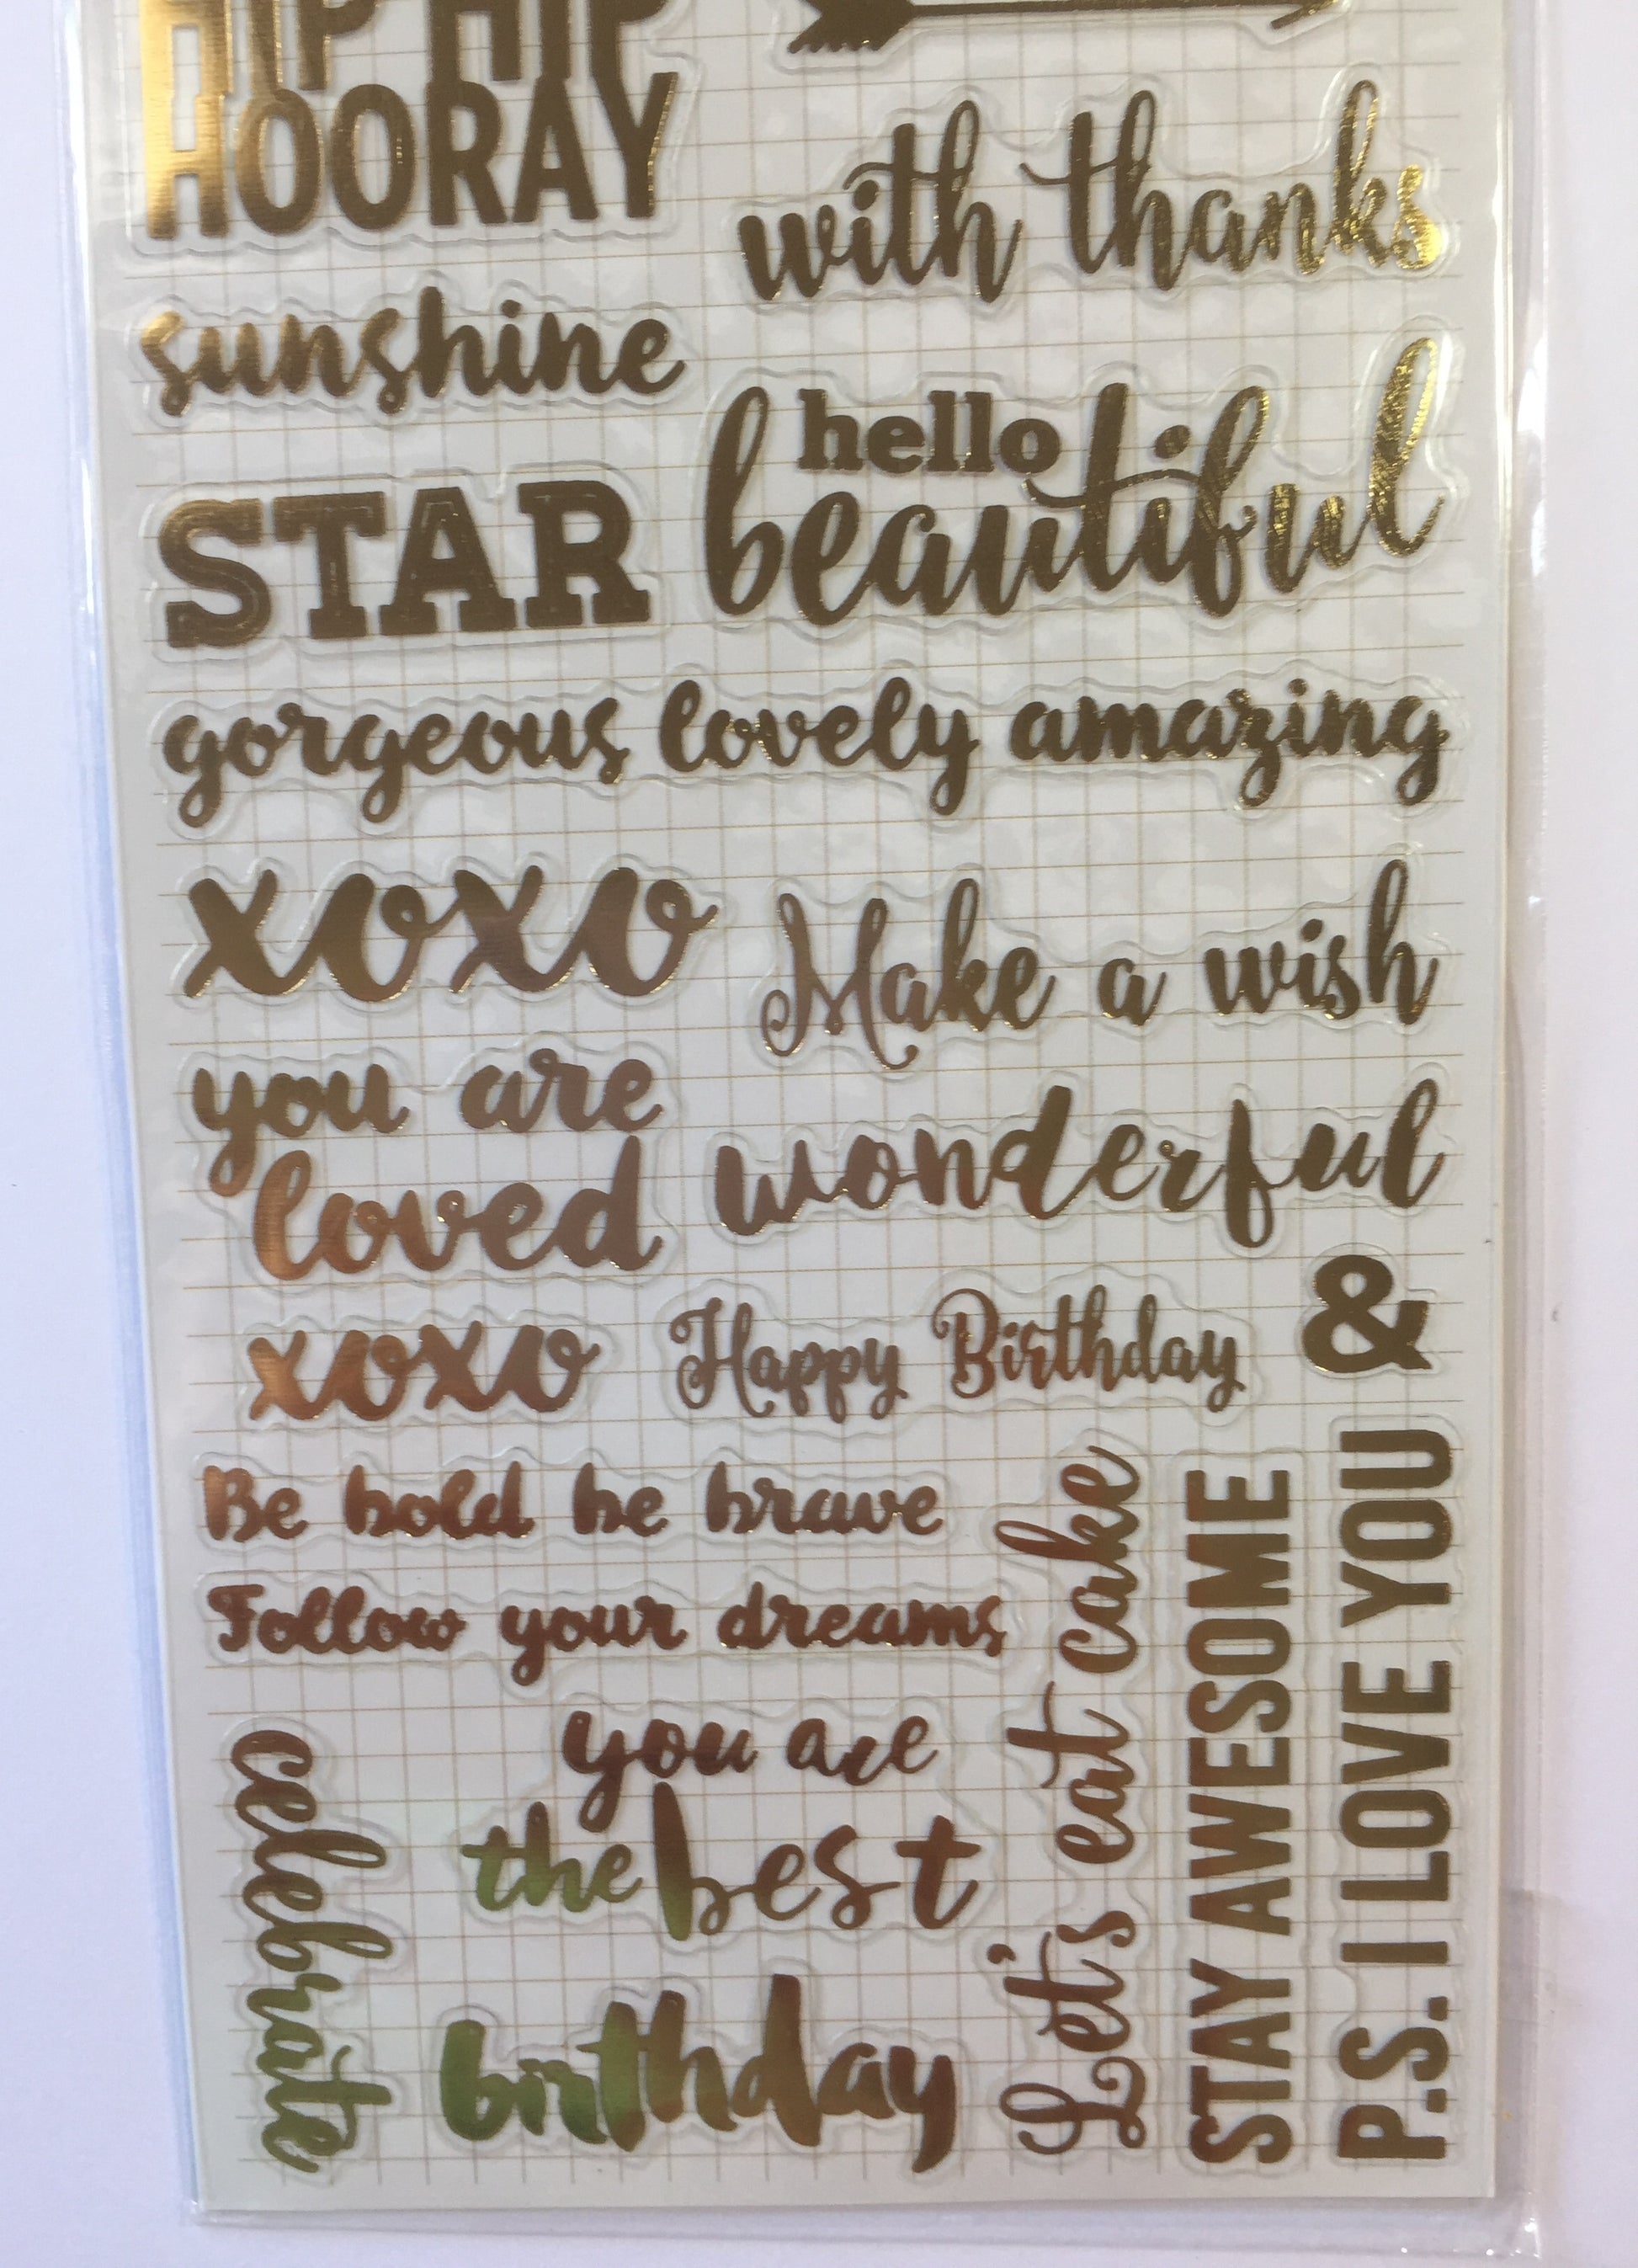 HIP HIP
HOORAY
with thanks
sunshine
hello
beautiful
STAR
gorgeous lovely amazing
xoxo
Make a wish
you are
loved
wonderful
xoxo
Happy Birthday
&
Be bold be brave
Follow your dreams
you are
the best
celebrate
birthday
Let's eat cake
STAY AWESOME
P.S. I LOVE YOU